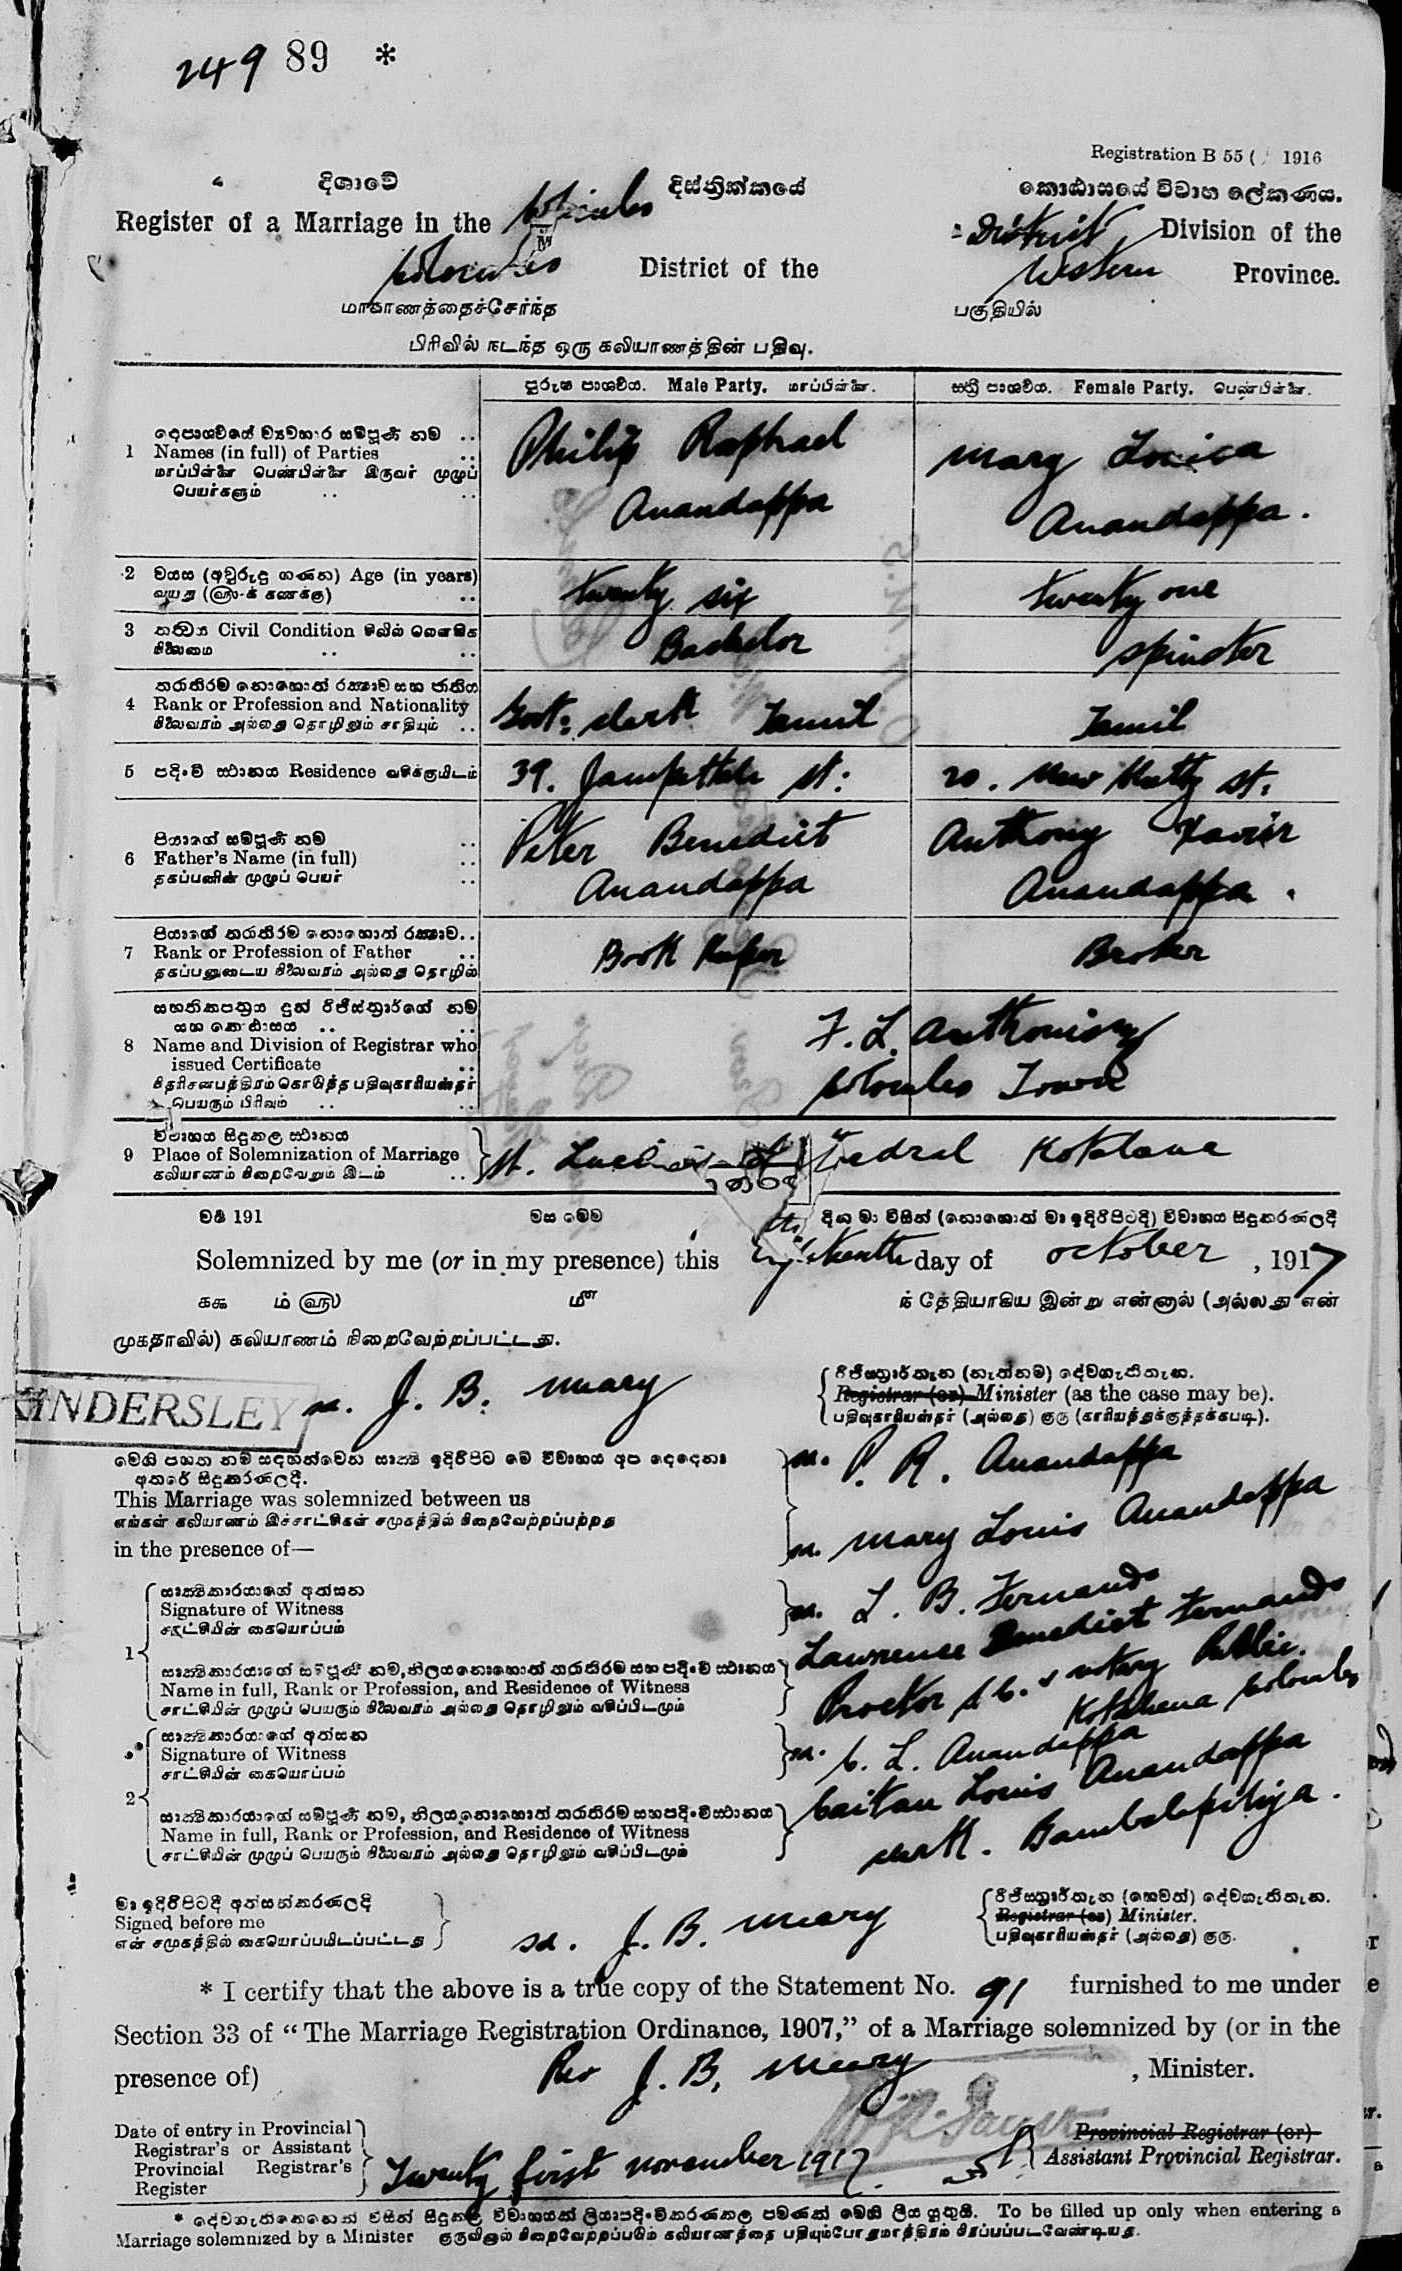 249 89 *
Registration B 55 ( 1916
දිශාවේ දිස්ත්‍රික්කයේ කොඨාසයේ විවාහ ලේකණය.
Register of a Marriage in the Colombo District Division of the
Colombo District of the Western Province.
மாகாணத்தைச்சேர்ந்த பகுதியில்
பிரிவில் நடந்த ஒரு கலியாணத்தின் பதிவு.
පුරුෂ පාශවීය. Male Party. மாப்பிள்ளை. ස්ත්‍රී පාශවීය. Female Party. பெண்பிள்ளை.
දෙපාශවීයේ ව්‍යවහාර සම්පූර්ණ නම ..
1 Names (in full) of Parties ..
மாப்பிள்ளை பெண்பிள்ளை இருவர் முழுப்
பெயர்களும் .. ..
Philip Raphael Mary Louica
Anandappa Anandappa.
2 වයස (අවුරුදු ගණන) Age (in years)
வயது ..
twenty six twenty one
3 තත්වය Civil Condition சிவில் லௌகிக
நிலைமை .. ..
Bachelor Spinster
තරාතිරම නොහොත් රක්ෂාව සහ ජාතිය
4 Rank or Profession and Nationality
நிலைவரம் அல்லது தொழிலும் சாதியும் ..
Govt: clerk Tamil Tamil
5 පදිංචි ස්ථානය Residence வசிக்குமிடம்
39. Jampettah St: 20. New Chetty St.
පියාගේ සම්පූර්ණ නම ..
6 Father's Name (in full) ..
தகப்பனின் முழுப் பெயர் ..
Peter Benedict Anthony Xavier
Anandappa Anandappa.
පියාගේ තරාතිරම නොහොත් රක්ෂාව..
7 Rank or Profession of Father ..
தகப்பனுடைய நிலைவரம் அல்லது தொழில்
Book Keeper Broker
සහතිකපත්‍රය දුන් රෙජිස්ත්‍රාර්ගේ නම
සහ කොඨාසය .. ..
8 Name and Division of Registrar who
issued Certificate ..
பெயரும் பிரிவும் .. ..
F. L. Anthonisz
Colombo Town
විවාහය සිදුකල ස්ථානය
9 Place of Solemnization of Marriage
கலியாணம் நிறைவேறும் இடம் ..
St. Lucia's Cathedral Kotahena
වර්ෂ 191 මස මෙම දින මා විසින් (නොහොත් මා ඉදිරිපිටදී) විවාහය සිදුකරණලදී
Solemnized by me (or in my presence) this eighteenth day of October, 1917
ம் மீ ந் தேதியாகிய இன்று என்னால் (அல்லது என்
முகதாவில்) கலியாணம் நிறைவேற்றப்பட்டது.
INDERSLEY
Sd. J. B. Meary
රෙජිස්ත්‍රාර්තැන (නැත්නම්) දේවගැතිතැන.
Registrar (or) Minister (as the case may be).
பதிவுகாரியஸ்தர் (அல்லது) குரு (காரியத்துக்குத்தக்கபடி).
මෙහි පහත නම් සඳහන්වෙන සාක්ෂි ඉදිරිපිට මේ විවාහය අප දෙදෙනා
අතරේ සිදුකරණලදී.
This Marriage was solemnized between us
எங்கள் கலியாணம் இச்சாட்சிகள் சமுகத்தில் நிறைவேற்றப்பற்றது
in the presence of—
Sd. P. R. Anandappa
Sd. Mary Louis Anandappa
සාක්ෂිකාරයාගේ අත්සන
Signature of Witness
சாட்சியின் கையொப்பம்
Sd. L. B. Fernando
1
සාක්ෂිකාරයාගේ සම්පූර්ණ නම, නිලය නොහොත් තරාතිරම සහ පදිංචි ස්ථානය
Name in full, Rank or Profession, and Residence of Witness
சாட்சியின் முழுப் பெயரும் நிலைவரம் அல்லது தொழிலும் வசிப்பிடமும்
Lawrence Benedict Fernando
Proctor S.C. & Notary Public.
Kotahena Colombo
සාක්ෂිකාරයාගේ අත්සන
Signature of Witness
சாட்சியின் கையொப்பம்
Sd. C. L. Anandappa
2
සාක්ෂිකාරයාගේ සම්පූර්ණ නම, නිලය නොහොත් තරාතිරම සහ පදිංචි ස්ථානය
Name in full, Rank or Profession, and Residence of Witness
சாட்சியின் முழுப் பெயரும் நிலைவரம் அல்லது தொழிலும் வசிப்பிடமும்
Caitan Louis Anandappa
clerk. Bambalapitiya.
මා ඉදිරිපිටදී අත්සන්කරණලදි
Signed before me
என் சமுகத்தில் கையொப்பமிடப்பட்டது
Sd. J. B. Meary
රෙජිස්ත්‍රාර්තැන (හෙවත්) දේවගැතිතැන.
Registrar (or) Minister.
பதிவுகாரியஸ்தர் (அல்லது) குரு.
* I certify that the above is a true copy of the Statement No. 91 furnished to me under
Section 33 of "The Marriage Registration Ordinance, 1907," of a Marriage solemnized by (or in the
presence of) Rev J. B. Meary , Minister.
Date of entry in Provincial
Registrar's or Assistant
Provincial Registrar's
Register
Twenty first November 1917.
Provincial Registrar (or)
Assistant Provincial Registrar.
* දේවගැතිකෙනෙක් විසින් සිදුකල විවාහයක් ලියාපදිංචිකරණකල පමණක් මෙහි ලිය යුතුයි. To be filled up only when entering a
Marriage solemnized by a Minister குருவினால் நிறைவேற்றப்படும் கலியாணத்தை பதியும்போதுமாத்திரம் நிரப்பப்படவேண்டியது.